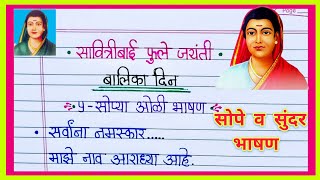 Page
सावित्रीबाई फुले जयंती
बालिका दिन
५-सोप्या ओळी भाषण
• सर्वांना नमस्कार.....
माझे नाव आराध्या आहे.
सोपे व सुंदर
भाषण